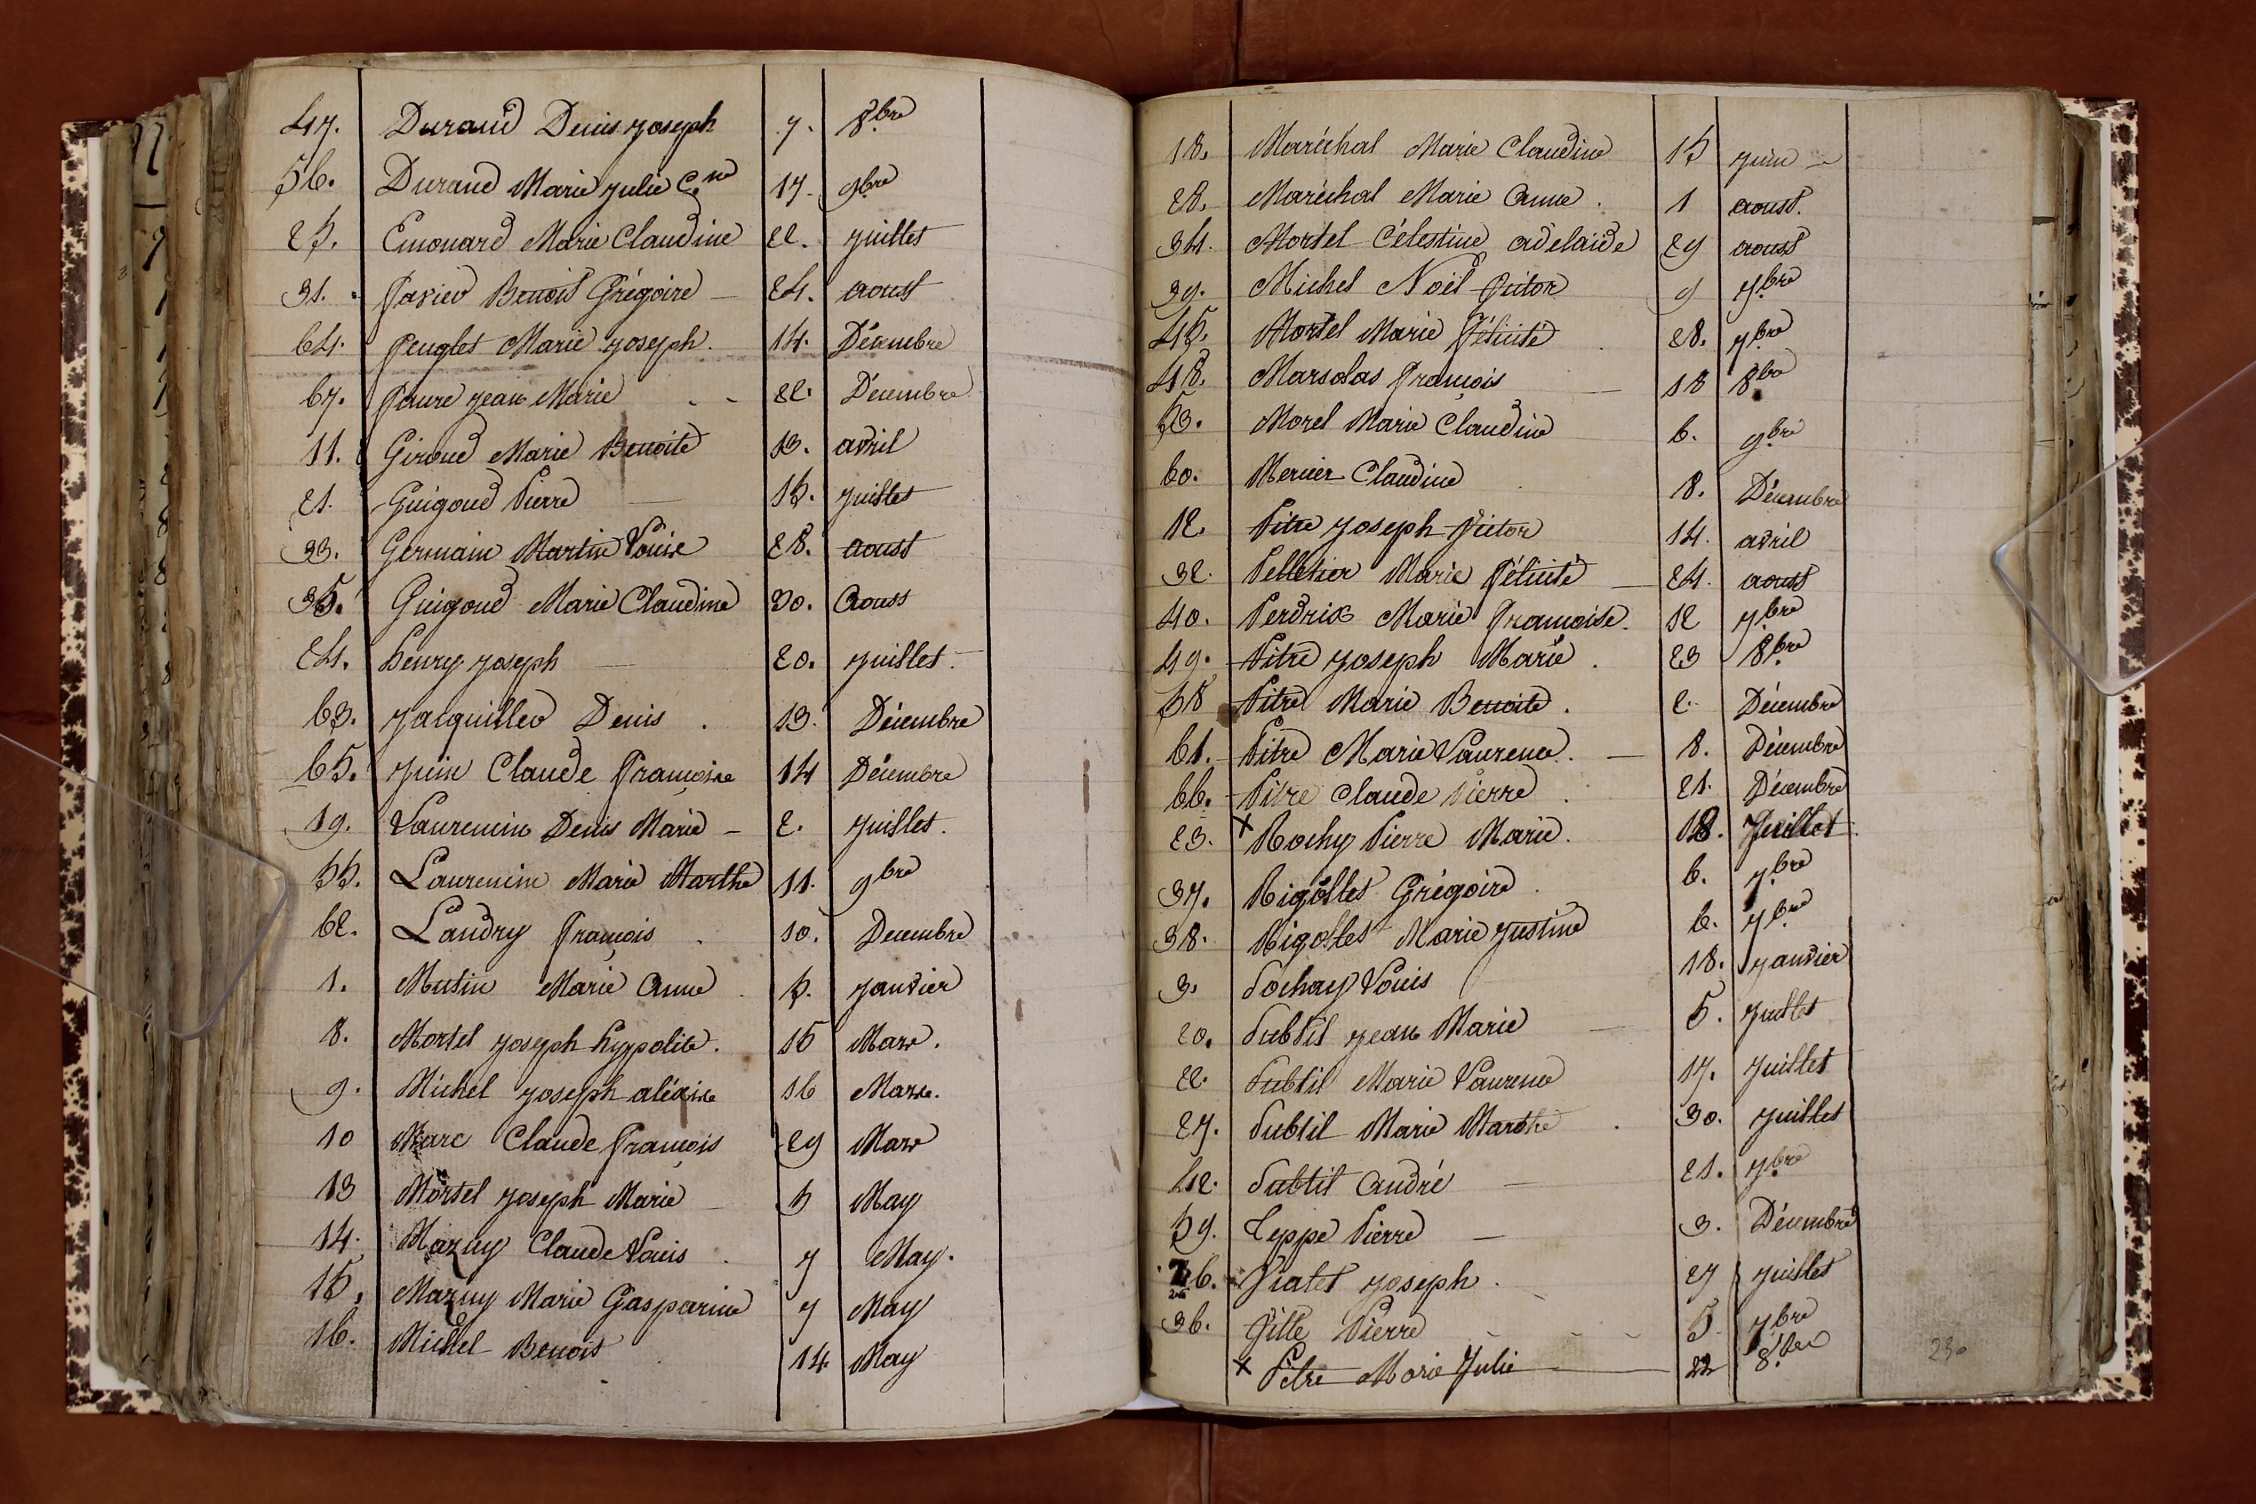 47. Durand Denis Joseph 7. 8.bre
56. Durand Marie Julie C.ne 17. 9bre
25. Emonard Marie Claudine 22. Juillet
31. Favier Benoit Grégoire 24. aoust
64. Feuglet Marie Joseph. 14. Décembre
67. Faure Jean Marie 22. Décembre
11. Giroud Marie Benoite 13. avril
21. Guigoud Pierre 15. Juillet
33. Germain Martin Louise 28. aoust
35. Guigoud Marie Claudine 30. Aoust
24. henry Joseph 20. Juillet.
63. Jacquiller Denis. 13. Décembre
65. Juin Claude Françoise 14 Décembre
19. Laurencin Denis Marie 2. Juillet.
55. Laurencin Marie Marthe 11. 9bre
62. Landry François. 10. Decembre
1. Mutin Marie Anne 5. Janvier
8. Mortel Joseph hyppolite. 15 Mars.
9. Michel Joseph aléxise 16 Mars.
10 Marc Claude François 29 Mars
13 Mortel Joseph Marie 5 May
14. Mazuy Claude Louis. 7 May.
15. Mazuy Marie Gasparine 7 May
16. Michel Benoit 14 May
18. Maréchal Marie Claudine 15 Juin
28. Maréchal Marie Anne. 1 aoust.
34. Mortel Célestine adelaide 29 aoust
39. Michel Noël Victor 9 7.bre
45. Mortel Marie Félicité 28. 7.bre
48. Marsolas François 18 8.bre
53. Morel Marie Claudine 6. 9.bre
60. Mercier Claudine 8. Décembre
12. Pitre Joseph Victor 14. avril
32. Pelletier Marie Félicité 24. aoust
40. Perdrix Marie Françoise. 12 7.bre
49. Pitre Joseph Marie. 23 8.bre
58 Pitre Marie Benoite. 2. Décembre
61. Pitre Marie Laurence. 8. Décembre
66. Pitre Claude Pierre. 21. Décembre
23. x Rochy Pierre Marie. 18. Juillet.
37. Rigollet Grégoire. 6. 7.bre
38. Rigollet Marie Justine 6. 7.bre
3. Sochay Louis 18. Janvier
20. Subtil Jean Marie 5. Juillet
22. Subtil Marie Laurence 17. Juillet
27. Subtil Marie Marthe. 30. Juillet
42. Subtil André 21. 7.bre
59. Teppe Pierre 3. Décembre
26. Viallet Joseph. 27 Juillet
36. Ville Pierre 5. 7.bre
x Pitre Marie Julie 22 8.bre
230